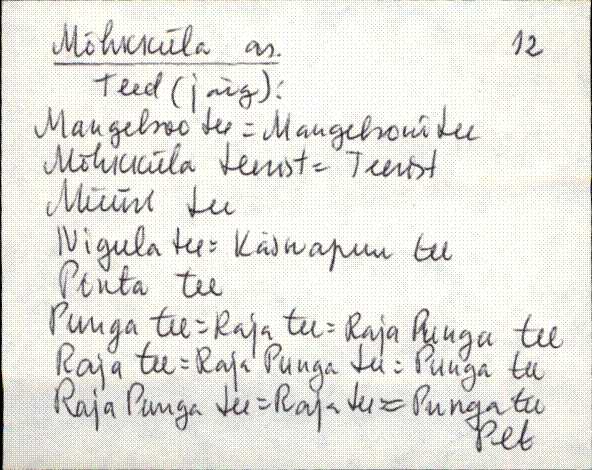 Mõhkküla as. 12
Teed (järg):
Mangelsoo tee = Mangelsoni tee
Mõhkküla teerist = Teerist
Müüri tee
Nigula tee = Käsnapuu tee
Penta tee
Punga tee = Raja tee = Raja Punga tee
Raja tee = Raja Punga tee = Punga tee
Raja Punga tee = Raja tee = Punga tee